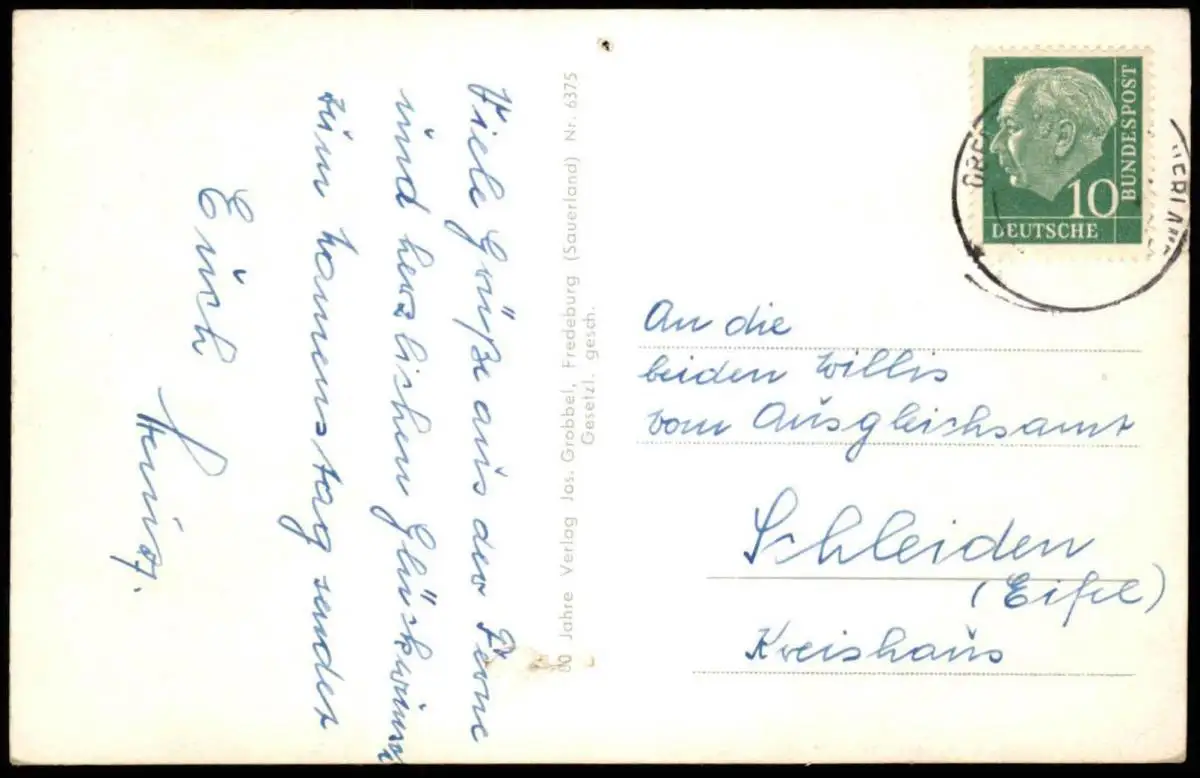 Viele Grüße aus der Ferne
und herzlichen Glückwunsch
zum Namenstag sendet
Euch
00 Jahre Verlag Jos. Grobbel, Fredeburg (Sauerland) Nr. 6375
Gesetzl. gesch.
BUNDESPOST
10
DEUTSCHE
An die
beiden Willis
vom Ausgleichsamt
Schleiden
(Eifel)
Kreishaus